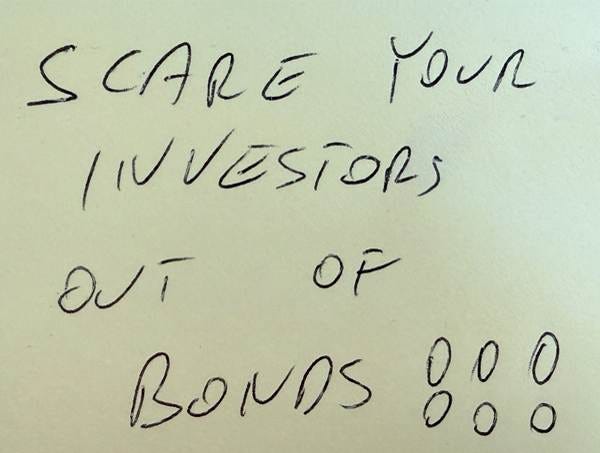 SCARE YOUR
INVESTORS
OUT OF
BONDS 000
000